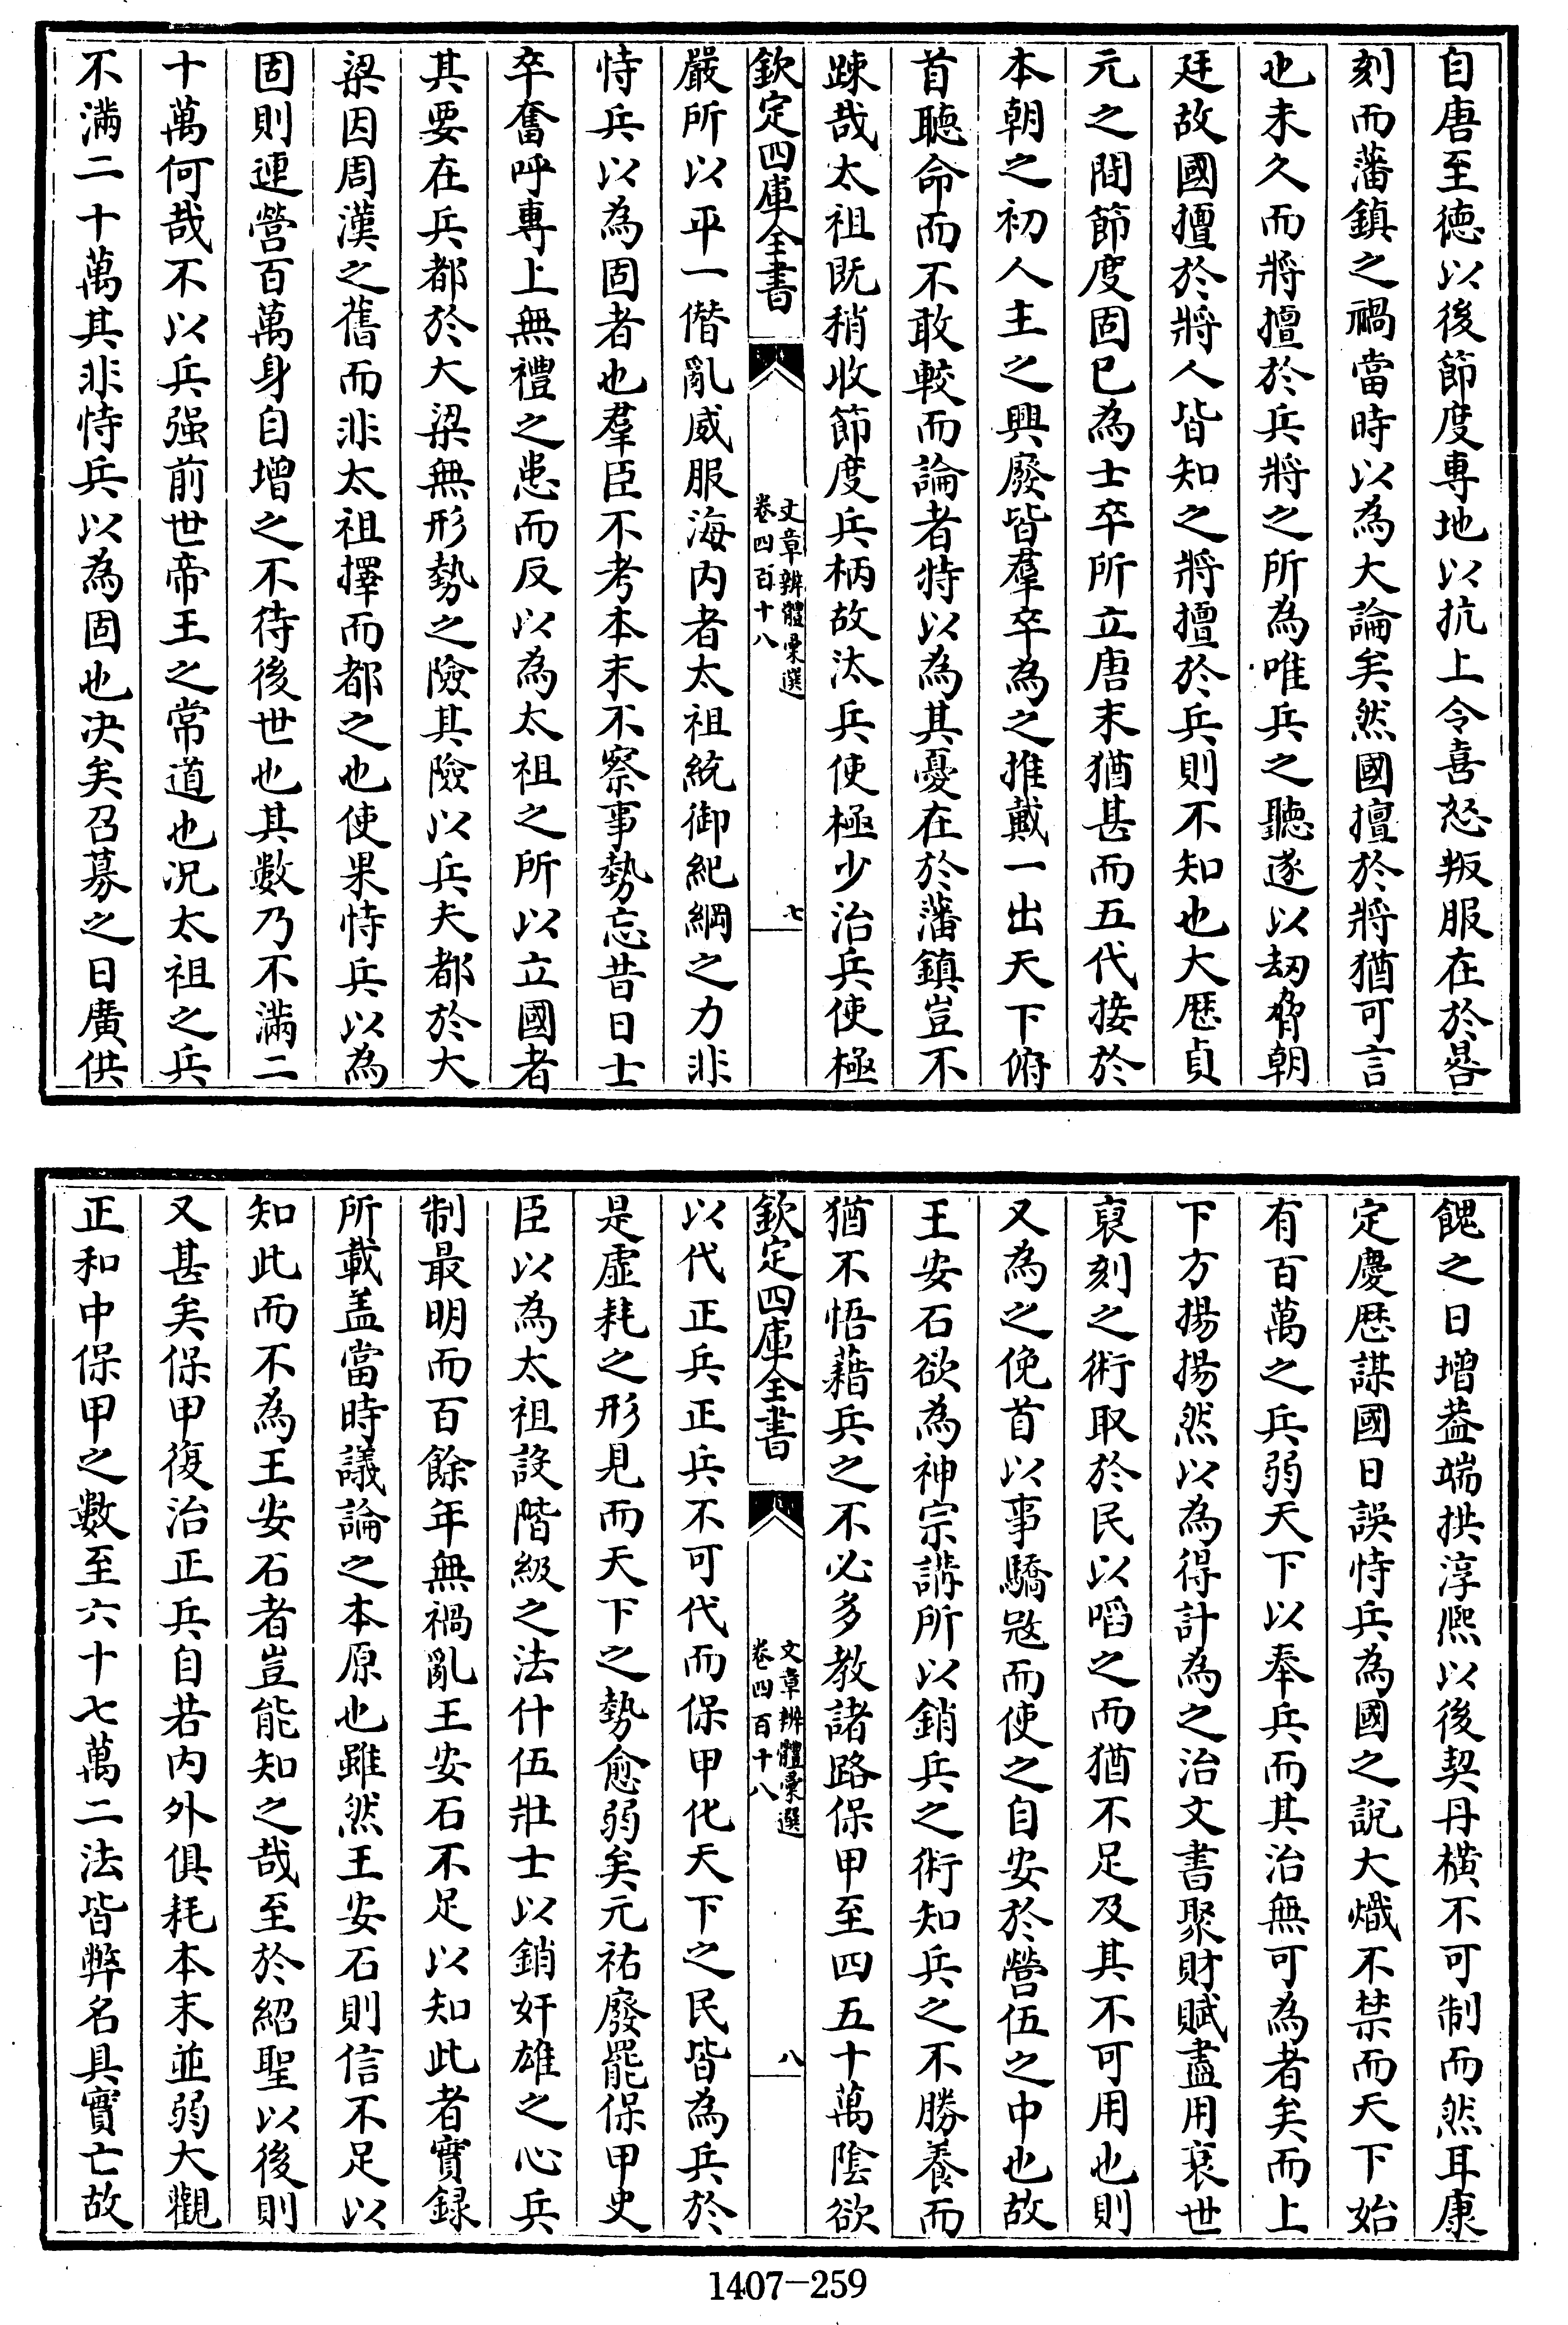 自唐至德以後節度專地以抗上令喜怒叛服在於晷
刻而藩鎮之禍當時以為大論矣然國擅於將猶可言
也未久而將擅於兵將之所為唯兵之聽遂以刼脅朝
廷故國擅於將人皆知之將擅於兵則不知也大歴貞
元之間節度固已為士卒所立唐末猶甚而五代接於
本朝之初人主之興廢皆羣卒為之推戴一出天下俯
首聽命而不敢較而論者特以為其憂在於藩鎮豈不
踈哉太祖既稍收節度兵柄故汰兵使極少治兵使極
欽定四庫全書
文章辨體彙選
卷四百十八
七
嚴所以平一僭亂威服海内者太祖統御紀綱之力非
恃兵以為固者也羣臣不考本末不察事勢忘昔日士
卒奮呼專上無禮之患而反以為太祖之所以立國者
其要在兵都於大梁無形勢之險其險以兵夫都於大
梁因周漢之舊而非太祖擇而都之也使果恃兵以為
固則連營百萬身自增之不待後世也其數乃不滿二
十萬何哉不以兵强前世帝王之常道也况太祖之兵
不滿二十萬其非恃兵以為固也决矣召募之日廣供
餽之日增葢端拱淳熈以後契丹橫不可制而然耳康
定慶歴謀國日誤恃兵為國之說大熾不禁而天下始
有百萬之兵弱天下以奉兵而其治無可為者矣而上
下方揚揚然以為得計為之治文書聚財賦盡用衰世
裒刻之術取於民以啗之而猶不足及其不可用也則
又為之俛首以事驕寇而使之自安於營伍之中也故
王安石欲為神宗講所以銷兵之術知兵之不勝養而
猶不悟藉兵之不必多教諸路保甲至四五十萬陰欲
欽定四庫全書
文章辨體彙選
卷四百十八
八
以代正兵正兵不可代而保甲化天下之民皆為兵於
是虚耗之形見而天下之勢愈弱矣元祐廢罷保甲史
臣以為太祖設階級之法什伍壯士以銷奸雄之心兵
制最明而百餘年無禍亂王安石不足以知此者實録
所載盖當時議論之本原也雖然王安石則信不足以
知此而不為王安石者豈能知之哉至於紹聖以後則
又甚矣保甲復治正兵自若内外俱耗本末並弱大觀
正和中保甲之數至六十七萬二法皆弊名具實亡故
1407-259